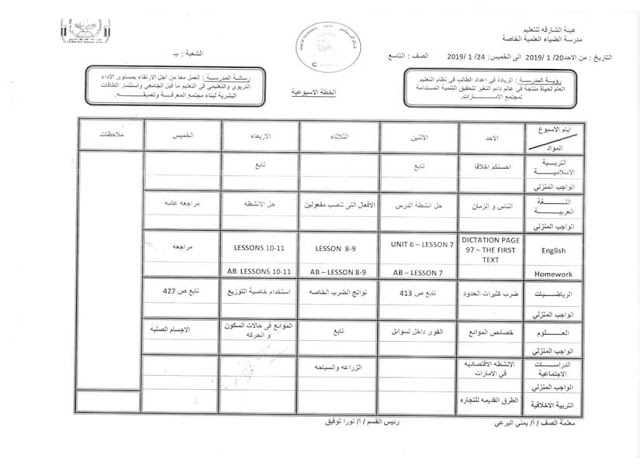 هيئة الشارقه للتعليم
مدرسة الضياء العلمية الخاصة
التاريخ : من الاحد20/ 1/ 2019 الى الخميس: 24/ 1/ 2019
الصف : التاسع
الشعبة : ب
رؤية المدرسة : الريادة في اعداد الطالب في نظام التعليم
العام لحياة منتجة في عالم دائم التغير لتحقيق التنمية المستدامة
لمجتمع الامارات.
رسالة المدرسة : العمل معا من اجل الارتقاء بمستوى الاداء
التربوي والتعليمي في التعليم ما قبل الجامعي واستثمار الطاقات
البشرية لبناء مجتمع المعرفة وتعميقه
الخطة الاسبوعية
ايام الاسبوع
المواد
الاحد
الاثنين
الثلاثاء
الاربعاء
الخميس
ملاحظات
التربية
الاسلامية
احسنكم اخلاقا
تابع
تابع
الواجب المنزلي
اللغة
العربية
الناس و الزمان
حل انشطة الدرس
الافعال التى تنصب مفعولين
حل الانشطه
مراجعه عامه
الواجب المنزلي
English
DICTATION PAGE
97 – THE FIRST
TEXT
UNIT 6 – LESSON 7
LESSON 8-9
LESSONS 10-11
مراجعه
Homework
AB – LESSON 7
AB – LESSON 8-9
AB LESSONS 10-11
الرياضيات
ضرب كثيرات الحدود
تابع ص 413
نواتج الضرب الخاصه
استخدام خاصية التوزيع
تابع ص 427
الواجب المنزلي
العلوم
خصائص الموائع
القوى داخل لسوائل
تابع
الموائع فى حالات السكون
و الحركه
الاجسام الصلبه
الواجب المنزلي
الدراسات
الاجتماعية
الانشطه الاقتصاديه
في الامارات
الزراعه والسياحه
الواجب المنزلي
التربية الاخلاقية
الطرق القديمه للتجاره
معلمة الصف / أ/ يمني البرعي
رئيس القسم / أ/ نورا توفيق